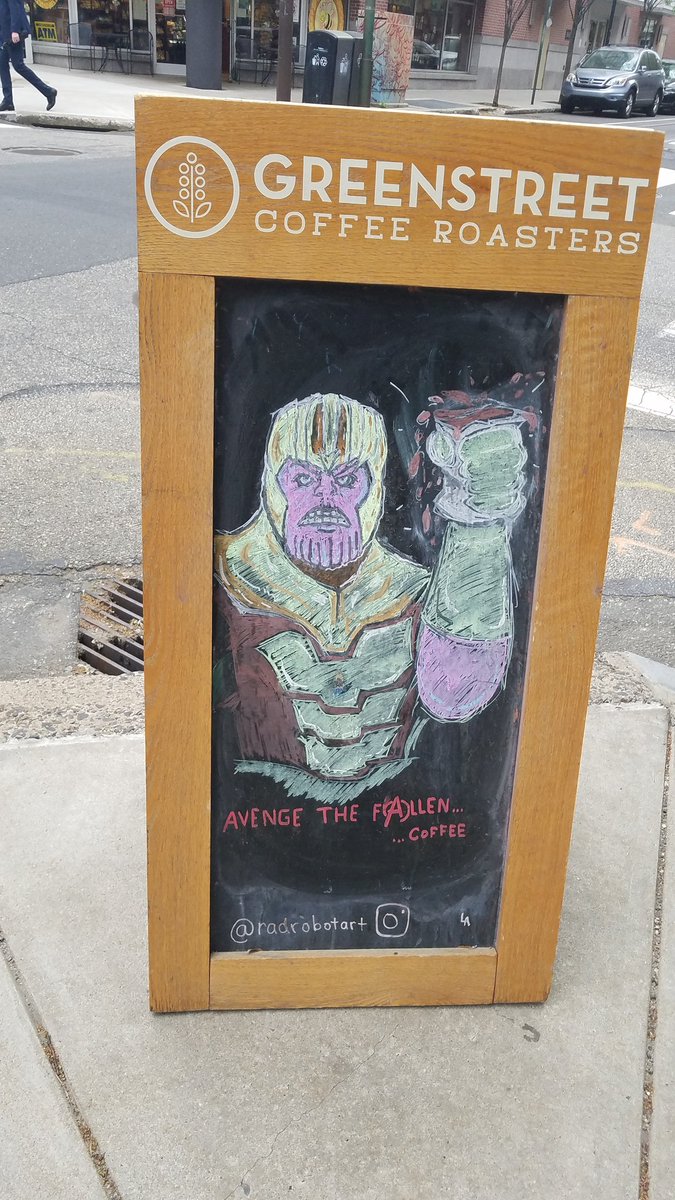 ATM
GREENSTREET
COFFEE ROASTERS
AVENGE THE F(A)LLEN...
...COFFEE
@radrobotart
LA